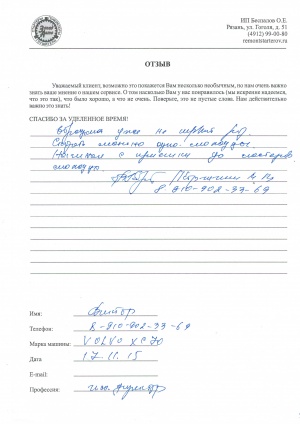 ИП Беспалов О.Е.
Рязань, ул. Гоголя, д. 51
(4912) 99-00-80
remontstarterov.ru
ОТЗЫВ
Уважаемый клиент, возможно это покажется Вам несколько необычным, но нам очень важно
знать ваше мнение о нашем сервисе. О том насколько Вам у нас понравилось (мы искренне надеемся,
что это так), что было хорошо, а что не очень. Поверьте, это не пустые слова. Нам действительно
важно это знать!
СПАСИБО ЗА УДЕЛЕННОЕ ВРЕМЯ!
Обращаюсь уже не первый раз
Сказать можно одно молодцы
Начиная с приемки до мастеров
молодцы.
8 910-902-33-69
Имя: Виктор
Телефон: 8-910-902-33-69
Марка машины: VOLVO XC70
Дата 17.11.15
E-mail:
Профессия: